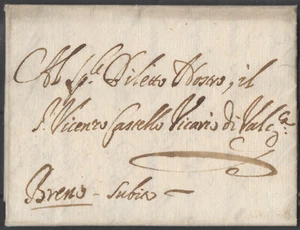 Al Sig.le Diletto Nostro, il
S. Vicenzo Castello Vicario di Valca.
Breno - Subito -